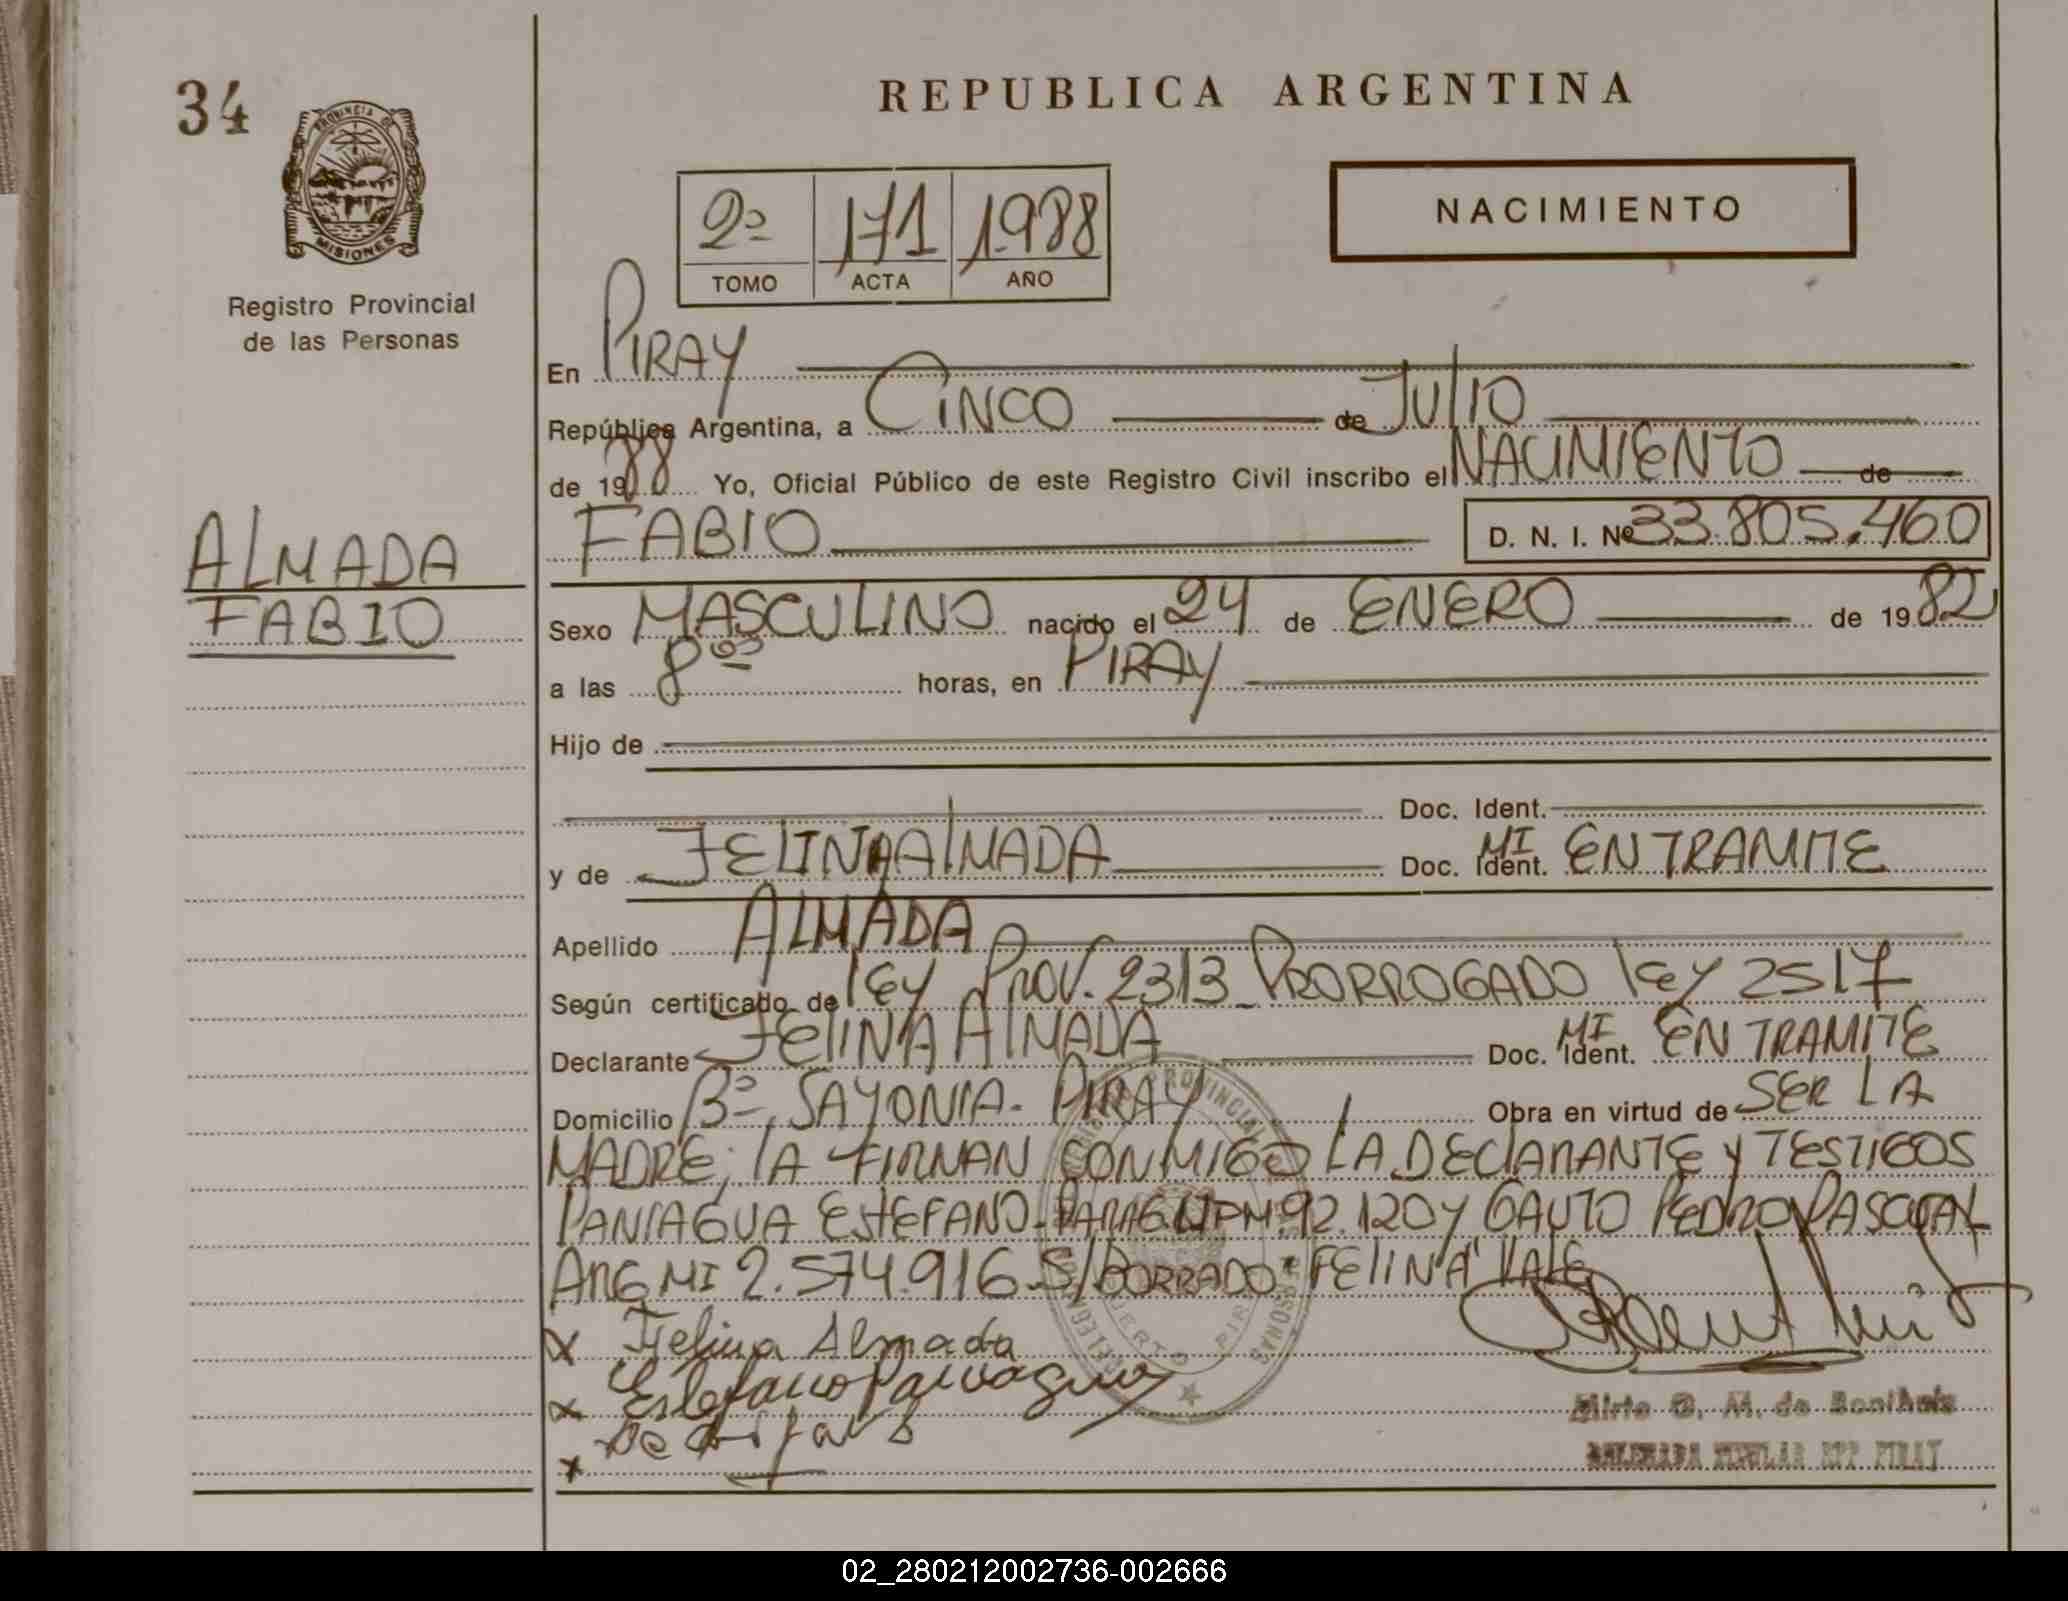 34
PROVINCIA DE
MISIONES
Registro Provincial
de las Personas
REPUBLICA ARGENTINA
2º 171 1988
TOMO ACTA AÑO
NACIMIENTO
En PIRAY
República Argentina, a CINCO de JULIO
de 1988 Yo, Oficial Público de este Registro Civil inscribo el NACIMIENTO de
FABIO D. N. I. Nº 33.805.460
ALMADA
FABIO
Sexo MASCULINO nacido el 24 de ENERO de 1982
a las 8 00 horas, en PIRAY
Hijo de
Doc. Ident.
y de FELINA ALMADA Doc. Ident. MI EN TRAMITE
Apellido ALMADA
Según certificado de LEY PROV. 2313 PRORROGADO LEY 2517
Declarante FELINA ALMADA Doc. Ident. MI EN TRAMITE
Domicilio Bº SAYONIA - PIRAY Obra en virtud de SER LA
MADRE; LA FIRMAN CONMIGO LA DECLARANTE Y TESTIGOS
PANIAGUA ESTEFANO - PARAG 92.120 Y GAUTO PEDRO PASCUAL
ARG MI 2.574.916 S/BORRADO "FELINA" VALE
x Felina Almada
x Estefano Paniagua
x
Mirta G. M. de
DELEGADA TITULAR RPP PIRAY
02_280212002736-002666